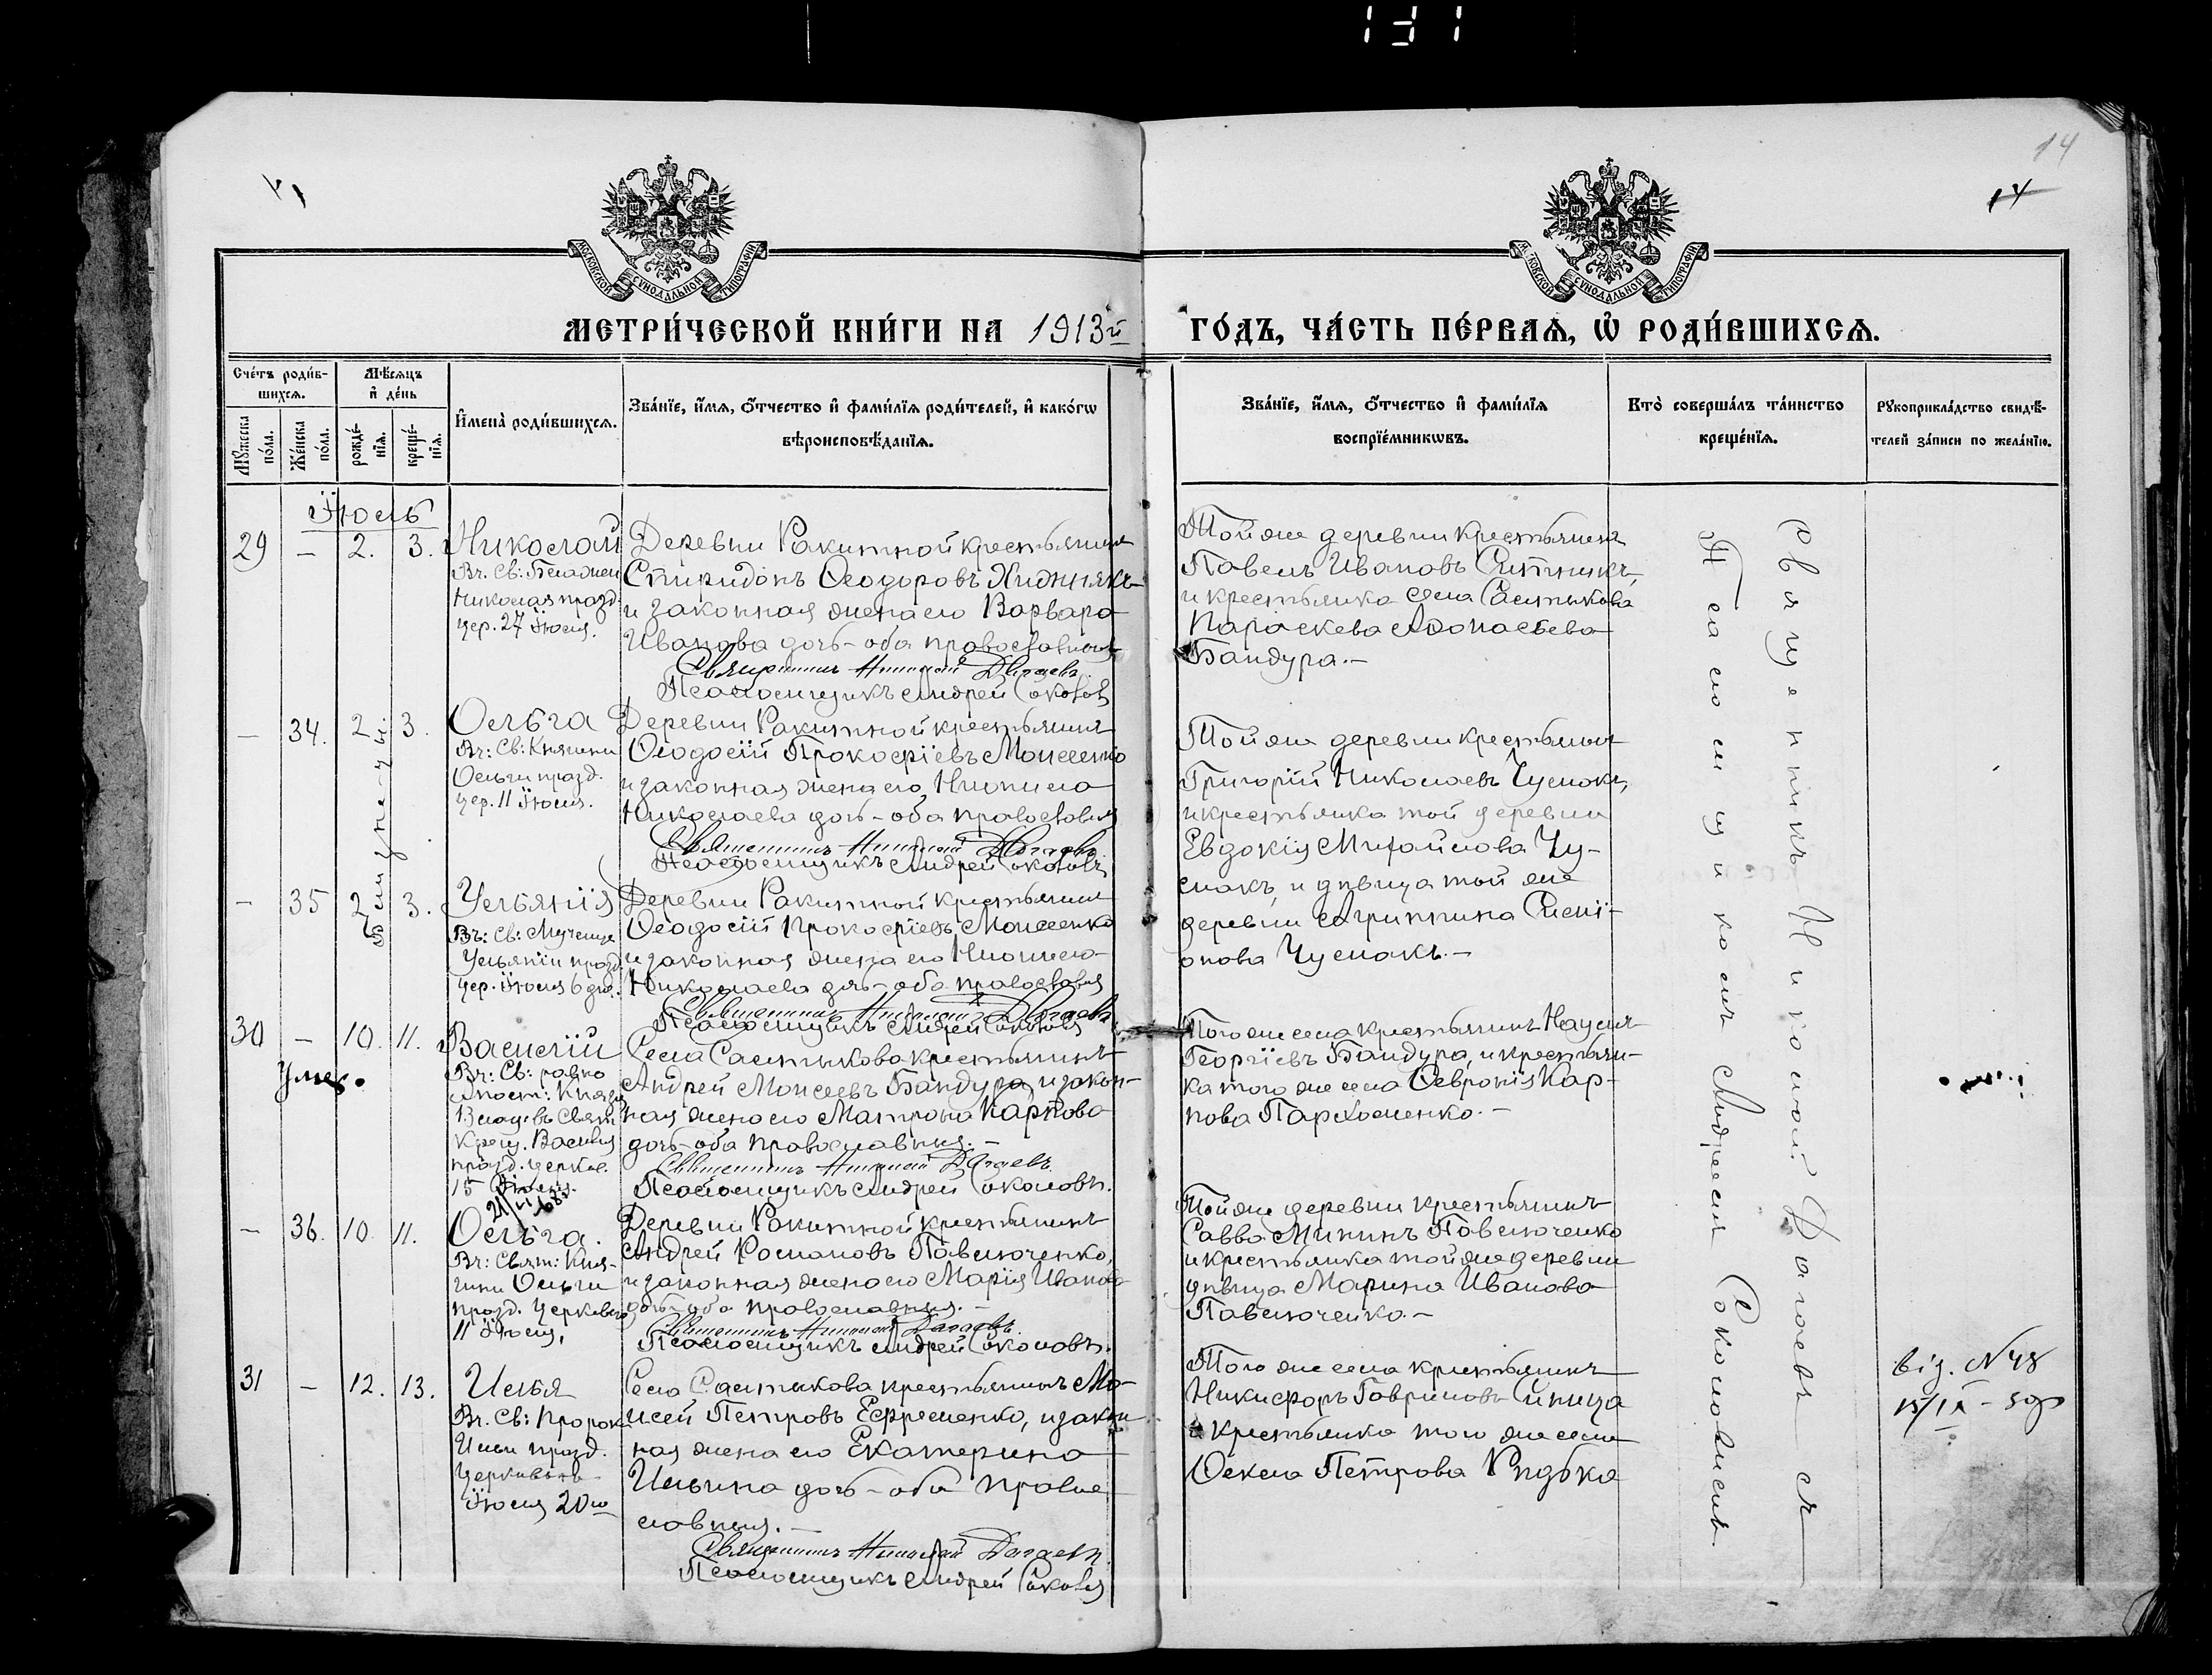 14
14
МОСКОВСКОЙ СѴНОДАЛЬНОЙ ТИПОГРАФІИ
МОСКОВСКОЙ СѴНОДАЛЬНОЙ ТИПОГРАФІИ
МЕТРИ́ЧЕСКОЙ КНИ́ГИ НА 1913й ГО́ДЪ, ЧА́СТЬ ПЕ́РВАѦ, Ѡ҆ РОДИ́ВШИХСѦ.
Сче́тъ роди́в-
шихсѧ.
Мѣ́сѧцъ
и҆ де́нь
Мꙋ́жеска
по́ла.
Же́нска
по́ла.
рожде́-
нїѧ.
креще́-
нїѧ.
И҆мена̀ роди́вшихсѧ.
Зва́нїе, и҆́мѧ, ѻ҆́тчество и҆ фами́лїѧ роди́телей, и҆ како́гѡ
вѣроисповѣ́данїѧ.
Зва́нїе, и҆́мѧ, ѻ҆́тчество и҆ фами́лїѧ
воспрїе́мникѡвъ.
Кто̀ соверша́лъ та́инство
креще́нїѧ.
Рꙋкоприкла́дство свидѣ́-
телей за́писи по жела́нїю.
Іюль
29 — 2. 3. Николай
Въ: Св: Блажен
Николая празд.
цер. 27 Іюля.
Деревни Ракитной крестьянинъ
Спиридонъ Ѳеодоровъ Хижнякъ
и законная жена его Варвара
Иванова дочь - оба православныя
Священникъ Николай Догаевъ
Псаломщикъ Андрей Соколовъ
Той же деревни крестьянинъ
Павелъ Ивановъ Ситникъ,
и крестьянка села Састыкова
Параскева Аѳонасьева
Бандура. —
— 34. 2 3. Ольга
Въ: Св: Княгини
Ольги празд.
цер. 11 Іюля.
Деревни Ракитной крестьянинъ
Ѳеодосій Прокофіевъ Моисеенко
и законная жена его Неонила
Николаева дочь - оба православныя
Священникъ Николай Догаевъ
Псаломщикъ Андрей Соколовъ
Близнецы
Той же деревни крестьянинъ
Григорій Николаевъ Чумакъ,
и крестьянка той деревни
Евдокія Михайлова Чу-
макъ, и дѣвица той же
деревни Агриппина Симі-
онова Чумакъ. —
— 35 2 3. Ульянія
Въ: Св: Мученице
Ульяніи празд.
цер. Іюля 6 дня.
Деревни Ракитной крестьянинъ
Ѳеодосій Прокофіевъ Моисеенко
и законная жена его Неонила
Николаева дочь - оба православныя
Священникъ Николай Догаевъ
Псаломщикъ Андрей Соколовъ
30 — 10. 11. Василій
Умер.
Въ: Св: равно
апост: Князя
Владиъ Свят
Крещ. Василія
празд. церков.
15 Іюля.
Села Састыкова крестьянинъ
Андрей Моисеевъ Бандура, и закон-
ная жена его Матрона Карпова
дочь - оба православныя. —
Священникъ Николай Догаевъ.
Псаломщикъ Андрей Соколовъ.
Того же села крестьянинъ Наумъ
Георгіевъ Бандура, и крестьян-
ка того же села Ѳевронія Кар-
пова Пархоменко. —
— 36. 10. 11. Ольга.
Въ: Свят: Кня-
гини Ольги
празд. Церковью
11 Іюля,
Деревни Ракитной крестьянинъ
Андрей Романовъ Павлюченко,
и законная жена его Марія Иванова
дочь - оба православныя. —
Священникъ Николай Догаевъ.
Псаломщикъ Андрей Соколовъ.
Той же деревни крестьянинъ
Савва Мининъ Павлюченко
и крестьянка той же деревни
дѣвица Марина Иванова
Павлюченко. —
31 — 12. 13. Илья
Въ: Св: Пророк
Ильи празд.
Церковью
Іюля 20го
Села Састыкова крестьянинъ Мо-
исей Петровъ Ефременко, и закон
ная жена его Екатерина
Ильина дочь - оба право
славныя. —
Священникъ Николай Догаевъ.
Псаломщикъ Андрей Соколовъ
Того же села крестьянинъ
Никифоръ Гавриловъ Синица
и крестьянка того же села
Ѳекла Петрова Рѣдька
Священникъ Николай Догаевъ съ
Псаломщикомъ Андреемъ Соколовымъ.
від. №48
15/IX - 59р